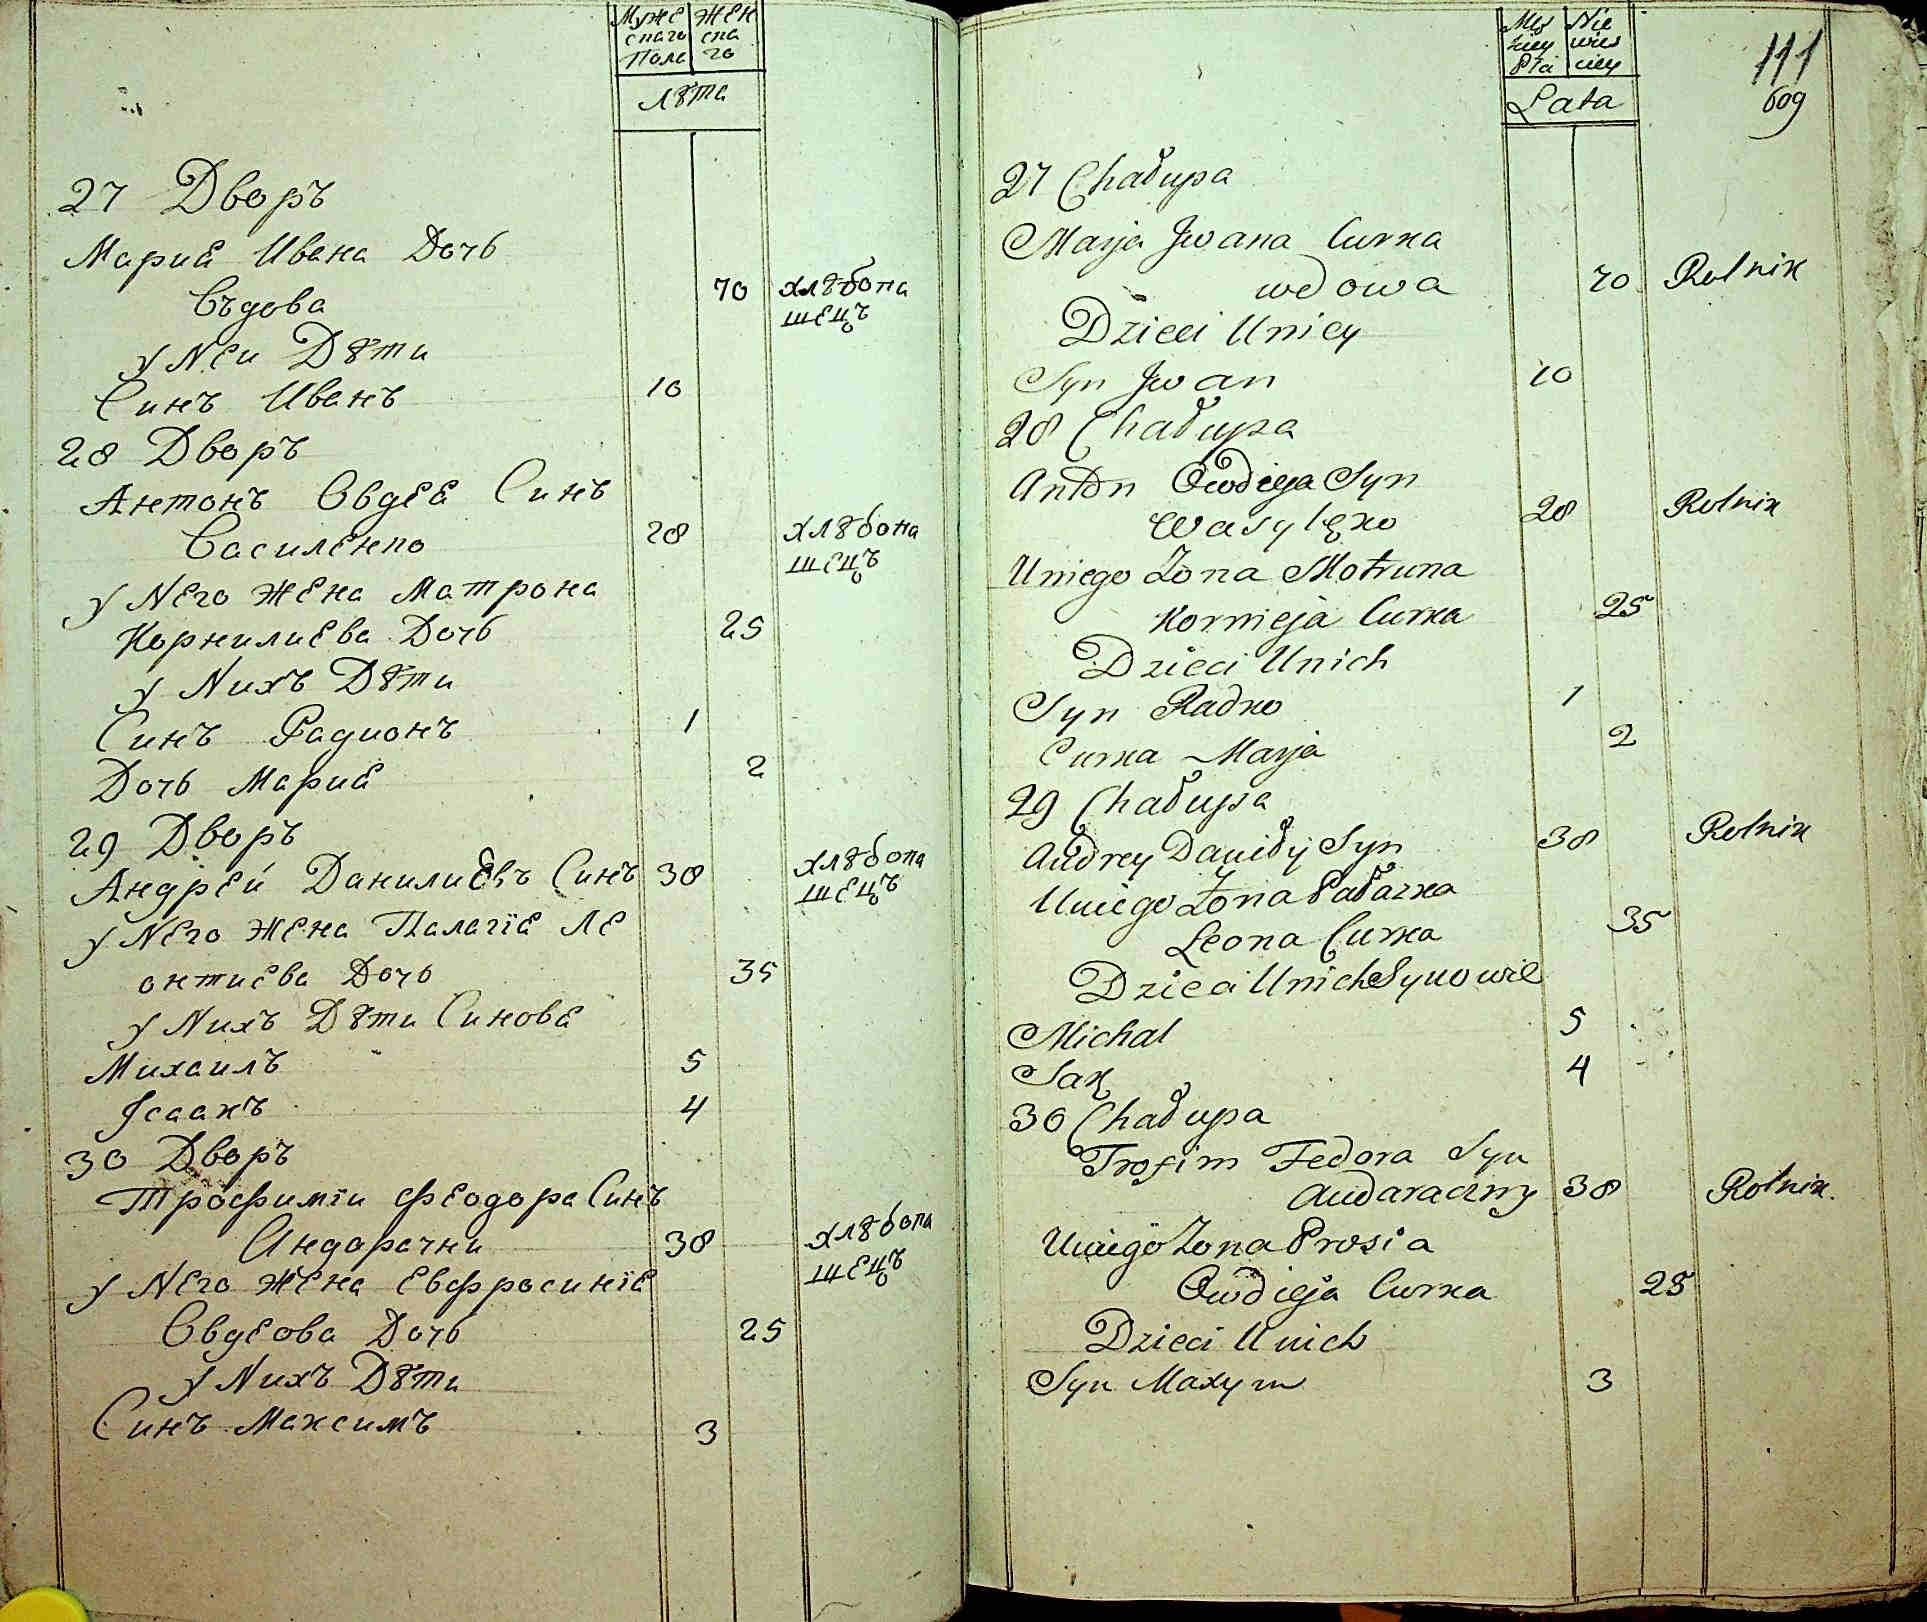 Муже Жен
скаго ска
Пола го
Лѣта
27 Дворъ
Мариа Ивана Дочь
Въдова 70 хлѣбопа
шецъ
у Nеи Дѣти
Синъ Иванъ 10
28 Дворъ
Антонъ Овдеа Синъ
Василенко 28 хлѣбопа
шецъ
у Nего жена Матрона
Корнилиева Дочь 25
у Nихъ Дѣти
Синъ Радионъ 1
Дочь Мариа 2
29 Дворъ
Андреи Данилиевъ Синъ 38 хлѣбопа
шецъ
у Nего жена Палагіа Ле
онтиева Дочь 35
у Nихъ Дѣти Синова
Михаилъ 5
Ісаакъ 4
30 Дворъ
Трофимъи Феодора Синъ
Андарачни 38 хлѣбопа
шецъ
у Nего жена Евфросиніа
Овдеова Дочь 25
у Nихъ Дѣти
Синъ Максимъ 3
Męs Nie
kiey wies
Płci ciey
Lata
111
609
27 Chałupa
Marja Jwana Curka
wdowa 70 Rolnik
Dzieci Uniey
Syn Jwan 10
28 Chałupa
Anton Owdieja Syn
Wasylęko 28 Rolnik
Uniego Żona Motruna
Kornieja Curka 25
Dzieci Unich
Syn Radko 1
Curka Marja 2
29 Chałupa
Andrey Daniły Syn 38 Rolnik
Uniego Żona Pałazka
Leona Curka 35
Dzieci Unich Synowie
Michal 5
Sak 4
30 Chałupa
Trofim Fedora Syn
Andaraczny 38 Rolnik.
Uniego Żona Prosia
Owdieja Curka 25
Dzieci Unich
Syn Maxym 3